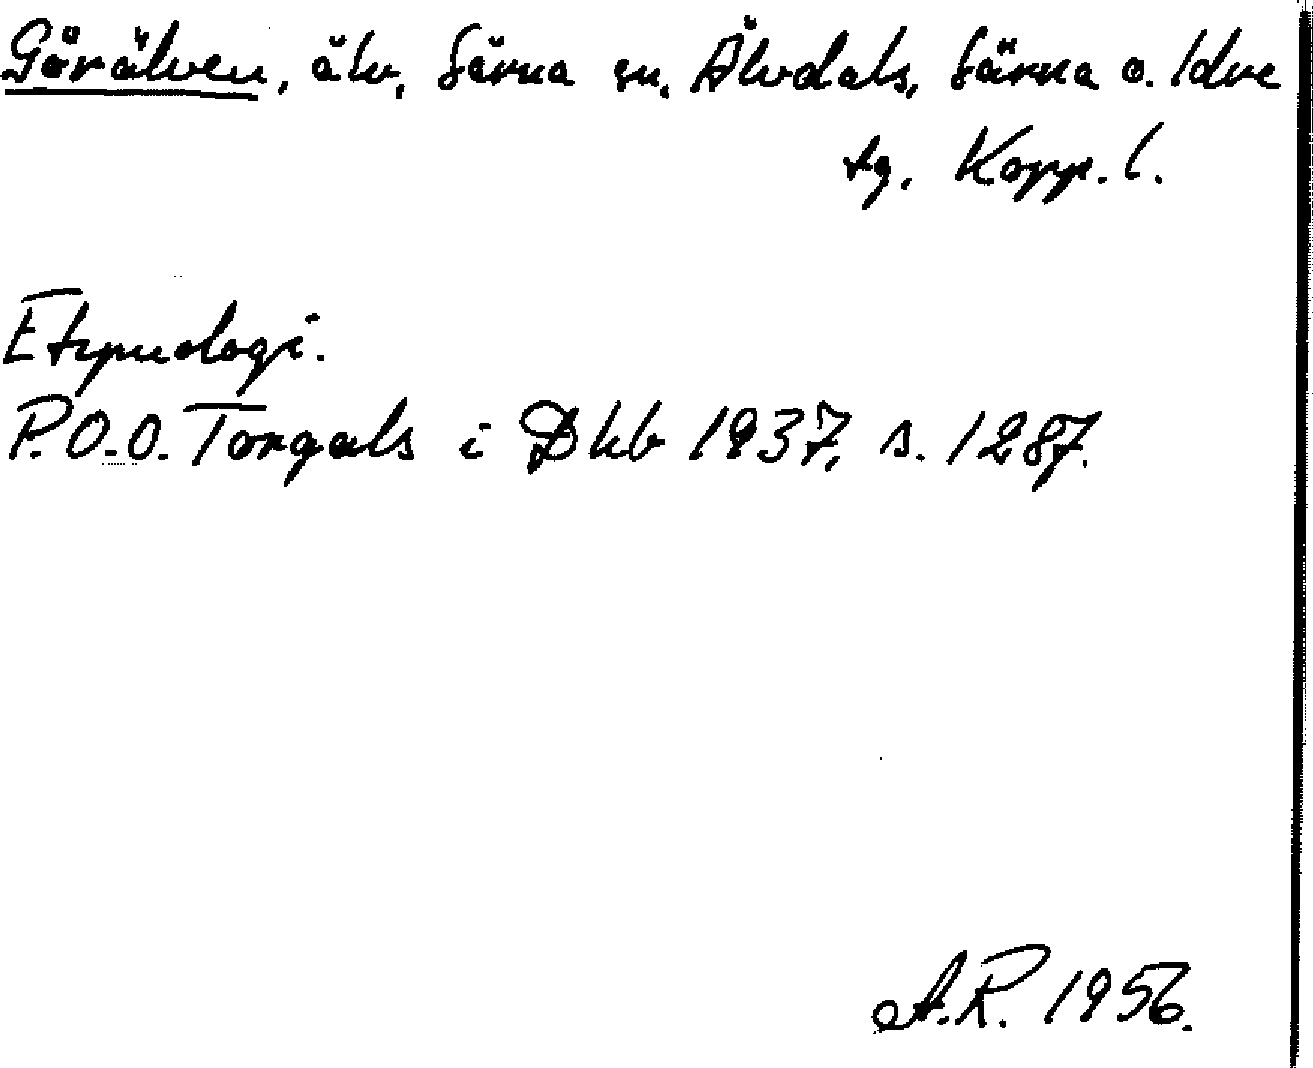 Görälven, älv, Särna sn, Älvdals, Särna o. Idre
tg, Kopp. l.
Etymologi.
P.O.O. Torgals i Dhb 1937, s. 1287.
A.R. 1956.